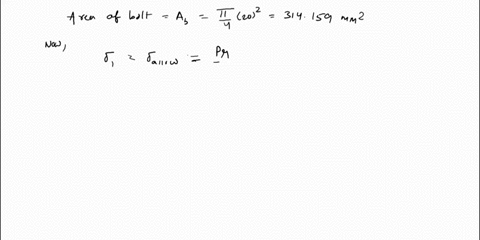 Area of bolt = A_b = π/4 (20)² = 314.159 mm²
Now,
σ₁ = σ_allow = Pr